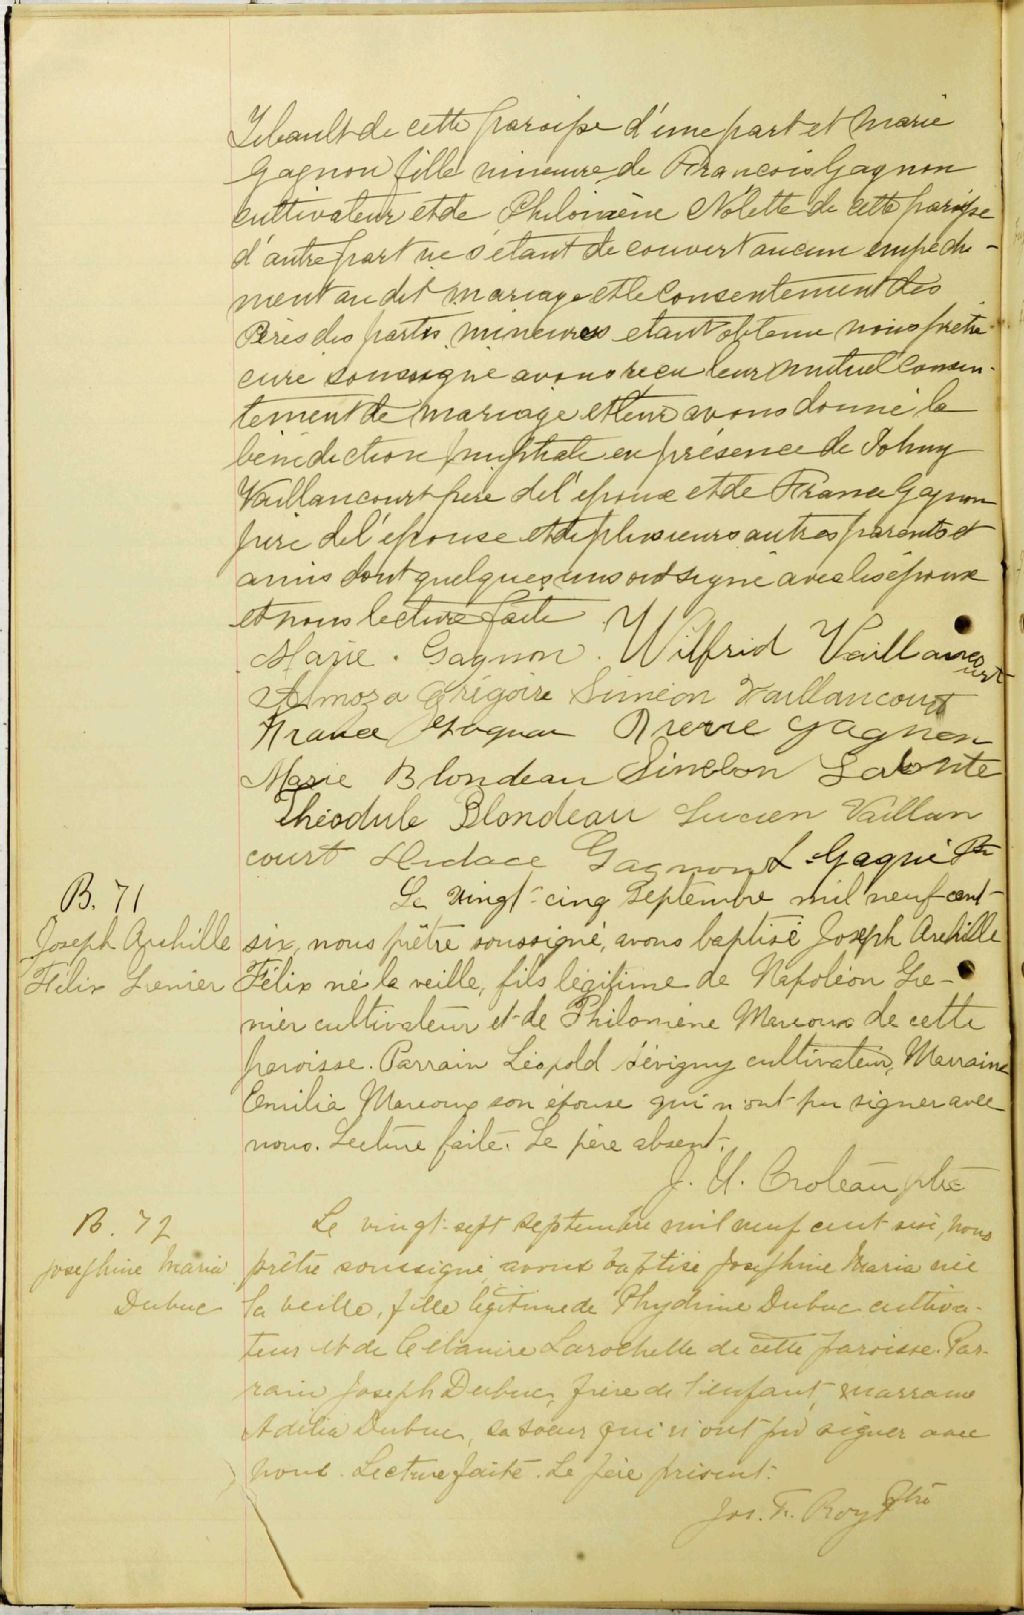 Tibault de cette paroisse d'une part et Marie
Gagnon fille mineure de François Gagnon
cultivateur et de Philomène Nolette de cette paroisse
d'autre part ne s'étant découvert aucun empêche-
ment au dit mariage et le consentement des
Pères des partis mineures etant obtenu nous prêtre
curé soussigné avons recu leur mutuel consen-
tement de mariage et leur avons donné la
bénédiction nuptiale en présence de Johny
Vaillancourt père de l'époux et de France Gagnon
père de l'épouse et de plusieurs autres parents et
amis dont quelques uns ont signé avec les époux
et nous lecture faite
Marie Gagnon. Wilfrid Vaillancourt
Almoza Grégoire Siméon Vaillancourt
France Gagnon Pierre Gagnon
Marie Blondeau Labonte
Théodule Blondeau Lucien Vaillan
court Gagnon L. Gagné Ptr
B. 71
Joseph Archille
Félix Grenier
Le vingt-cinq septembre mil neuf cent-
six, nous prêtre soussigné, avons baptisé Joseph Archille
Félix né la veille, fils légitime de Napoléon Gre-
nier cultivateur et de Philomène Marcoux de cette
paroisse. Parrain Léopold Sévigny cultivateur, Marraine
Emilia Marcoux son épouse qui n'ont pu signer avec
nous. Lecture faite. Le père absent.
J. U. Croteau ptre
B. 72
Josephine Maria
Dubuc
Le vingt-sept septembre mil neuf cent six, nous
prêtre soussigné, avons baptisé Josephine Maria née
la veille, fille légitime de Phydime Dubuc cultiva-
teur et de Célanire Larochelle de cette paroisse. Par-
rain Joseph Dubuc, frère de l'enfant, marraine
Adélia Dubuc, sa soeur qui n'ont pu signer avec
nous. Lecture faite. Le père présent.
Jos. F. Roy Ptre